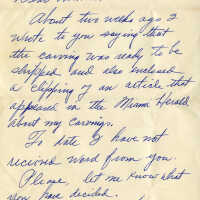 About two weeks ago I
wrote to you saying that
the carving was ready to be
shipped and also enclosed
a clipping of an article that
appeared in the Miami Herald
about my carvings.
To date I have not
recieved word from you.
Please, let me know what
you have decided.